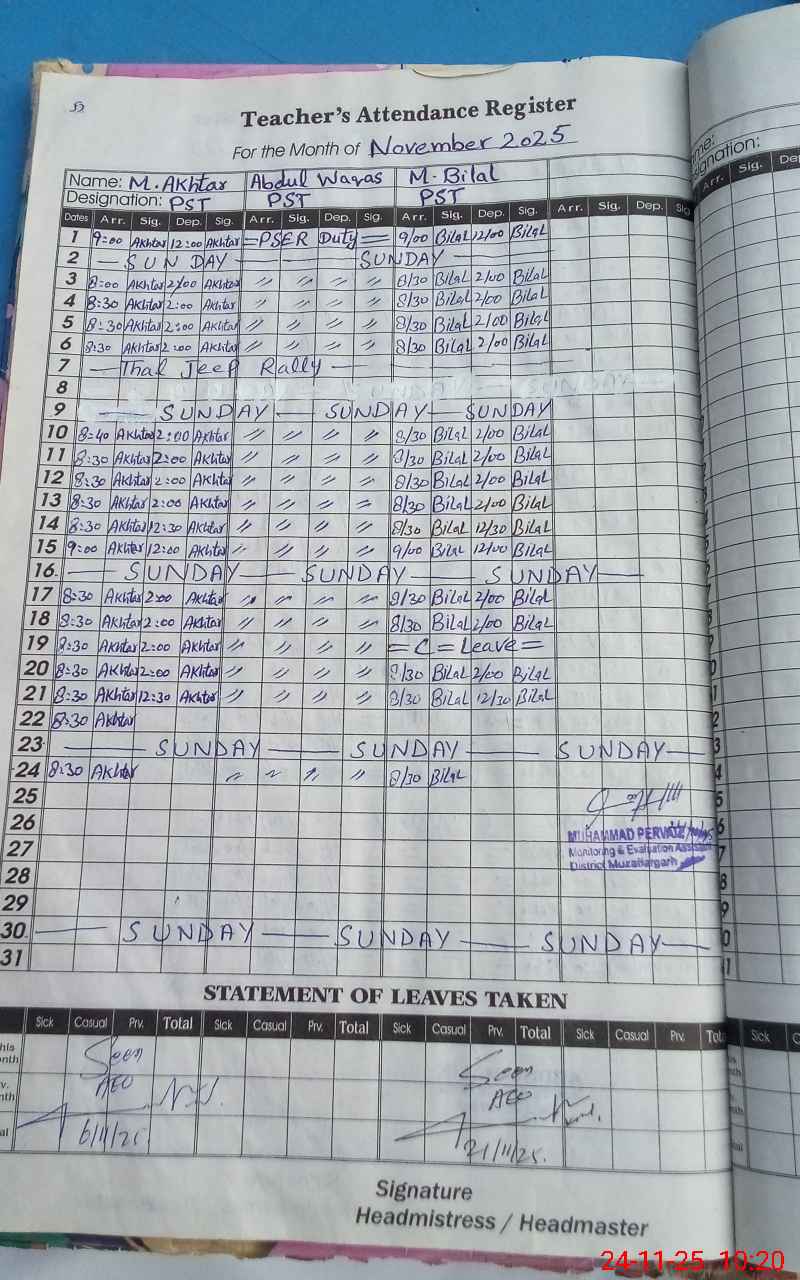 Teacher's Attendance Register
For the Month of November 2025
Name: M. Akhtar Abdul Waqas M. Bilal
Designation: PST PST PST
Dates Arr. Sig. Dep. Sig. Arr. Sig. Dep. Sig. Arr. Sig. Dep. Sig. Arr. Sig. Dep. Sig
1 9:00 Akhtar 12:00 Akhtar =PSER Duty= 9/00 Bilal 12/00 Bilal
2 — SUNDAY — SUNDAY —
3 8:00 Akhtar 2/00 Akhtar 〃 〃 〃 〃 8/30 Bilal 2/00 Bilal
4 8:30 Akhtar 2:00 Akhtar 〃 〃 〃 〃 8/30 Bilal 2/00 Bilal
5 8:30 Akhtar 2:00 Akhtar 〃 〃 〃 〃 8/30 Bilal 2/00 Bilal
6 8:30 Akhtar 2:00 Akhtar 〃 〃 〃 〃 8/30 Bilal 2/00 Bilal
7 — Thal Jeep Rally —
8
9 — SUNDAY — SUNDAY — SUNDAY
10 8:40 Akhtar 2:00 Akhtar 〃 〃 〃 〃 8/30 Bilal 2/00 Bilal
11 8:30 Akhtar 2:00 Akhtar 〃 〃 〃 〃 8/30 Bilal 2/00 Bilal
12 8:30 Akhtar 2:00 Akhtar 〃 〃 〃 〃 8/30 Bilal 2/00 Bilal
13 8:30 Akhtar 2:00 Akhtar 〃 〃 〃 〃 8/30 Bilal 2/00 Bilal
14 8:30 Akhtar 12:30 Akhtar 〃 〃 〃 〃 8/30 Bilal 12/30 Bilal
15 9:00 Akhtar 12:00 Akhtar 〃 〃 〃 〃 9/00 Bilal 12/00 Bilal
16. — SUNDAY — SUNDAY — SUNDAY —
17 8:30 Akhtar 2:00 Akhtar 〃 〃 〃 〃 8/30 Bilal 2/00 Bilal
18 8:30 Akhtar 2:00 Akhtar 〃 〃 〃 〃 8/30 Bilal 2/00 Bilal
19 8:30 Akhtar 2:00 Akhtar 〃 〃 〃 〃 = C = Leave =
20 8:30 Akhtar 2:00 Akhtar 〃 〃 〃 〃 8/30 Bilal 2/00 Bilal
21 8:30 Akhtar 12:30 Akhtar 〃 〃 〃 〃 8/30 Bilal 12/30 Bilal
22 8:30 Akhtar
23 — SUNDAY — SUNDAY — SUNDAY —
24 8:30 Akhtar 〃 〃 〃 〃 8/30 Bilal
25
26
MUHAMMAD PERVAIZ
27
Monitoring & Evaluation Assistant
District Muzaffargarh
28
29
30. — SUNDAY — SUNDAY — SUNDAY —
31
STATEMENT OF LEAVES TAKEN
Sick Casual Prv. Total Sick Casual Prv. Total Sick Casual Prv. Total Sick Casual Prv. Tot
Seen Seen
AEO AEO
6/11/25 21/11/25.
Signature
Headmistress / Headmaster
24-11-25 10:20